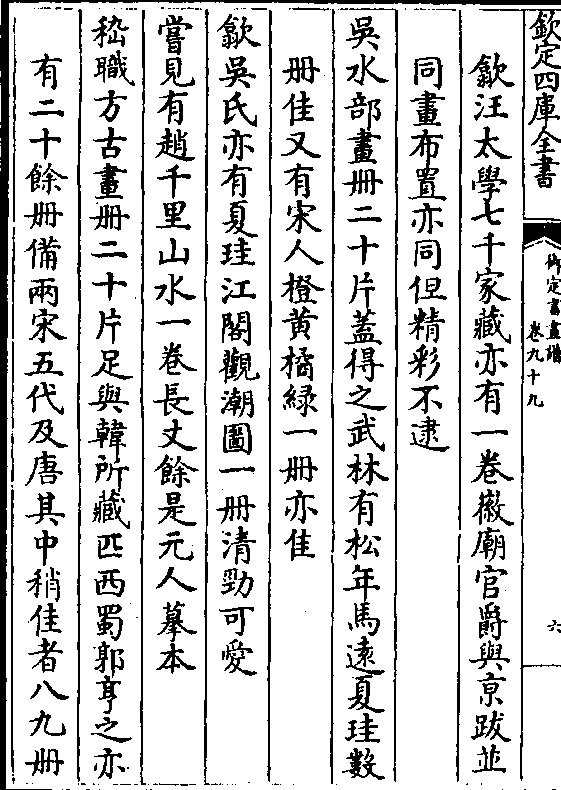 欽定四庫全書
御定書畫譜
卷九十九
六
歙汪太學七千家藏亦有一卷徽廟官爵與京跋並
同畫布置亦同但精彩不逮
吳水部畫册二十片蓋得之武林有松年馬遠夏珪數
册佳又有宋人橙黄橘緑一册亦佳
歙吳氏亦有夏珪江閣觀潮圖一册清勁可愛
嘗見有趙千里山水一卷長丈餘是元人摹本
嵇職方古畫册二十片足與韓所藏匹西蜀郭亨之亦
有二十餘册備兩宋五代及唐其中稍佳者八九册